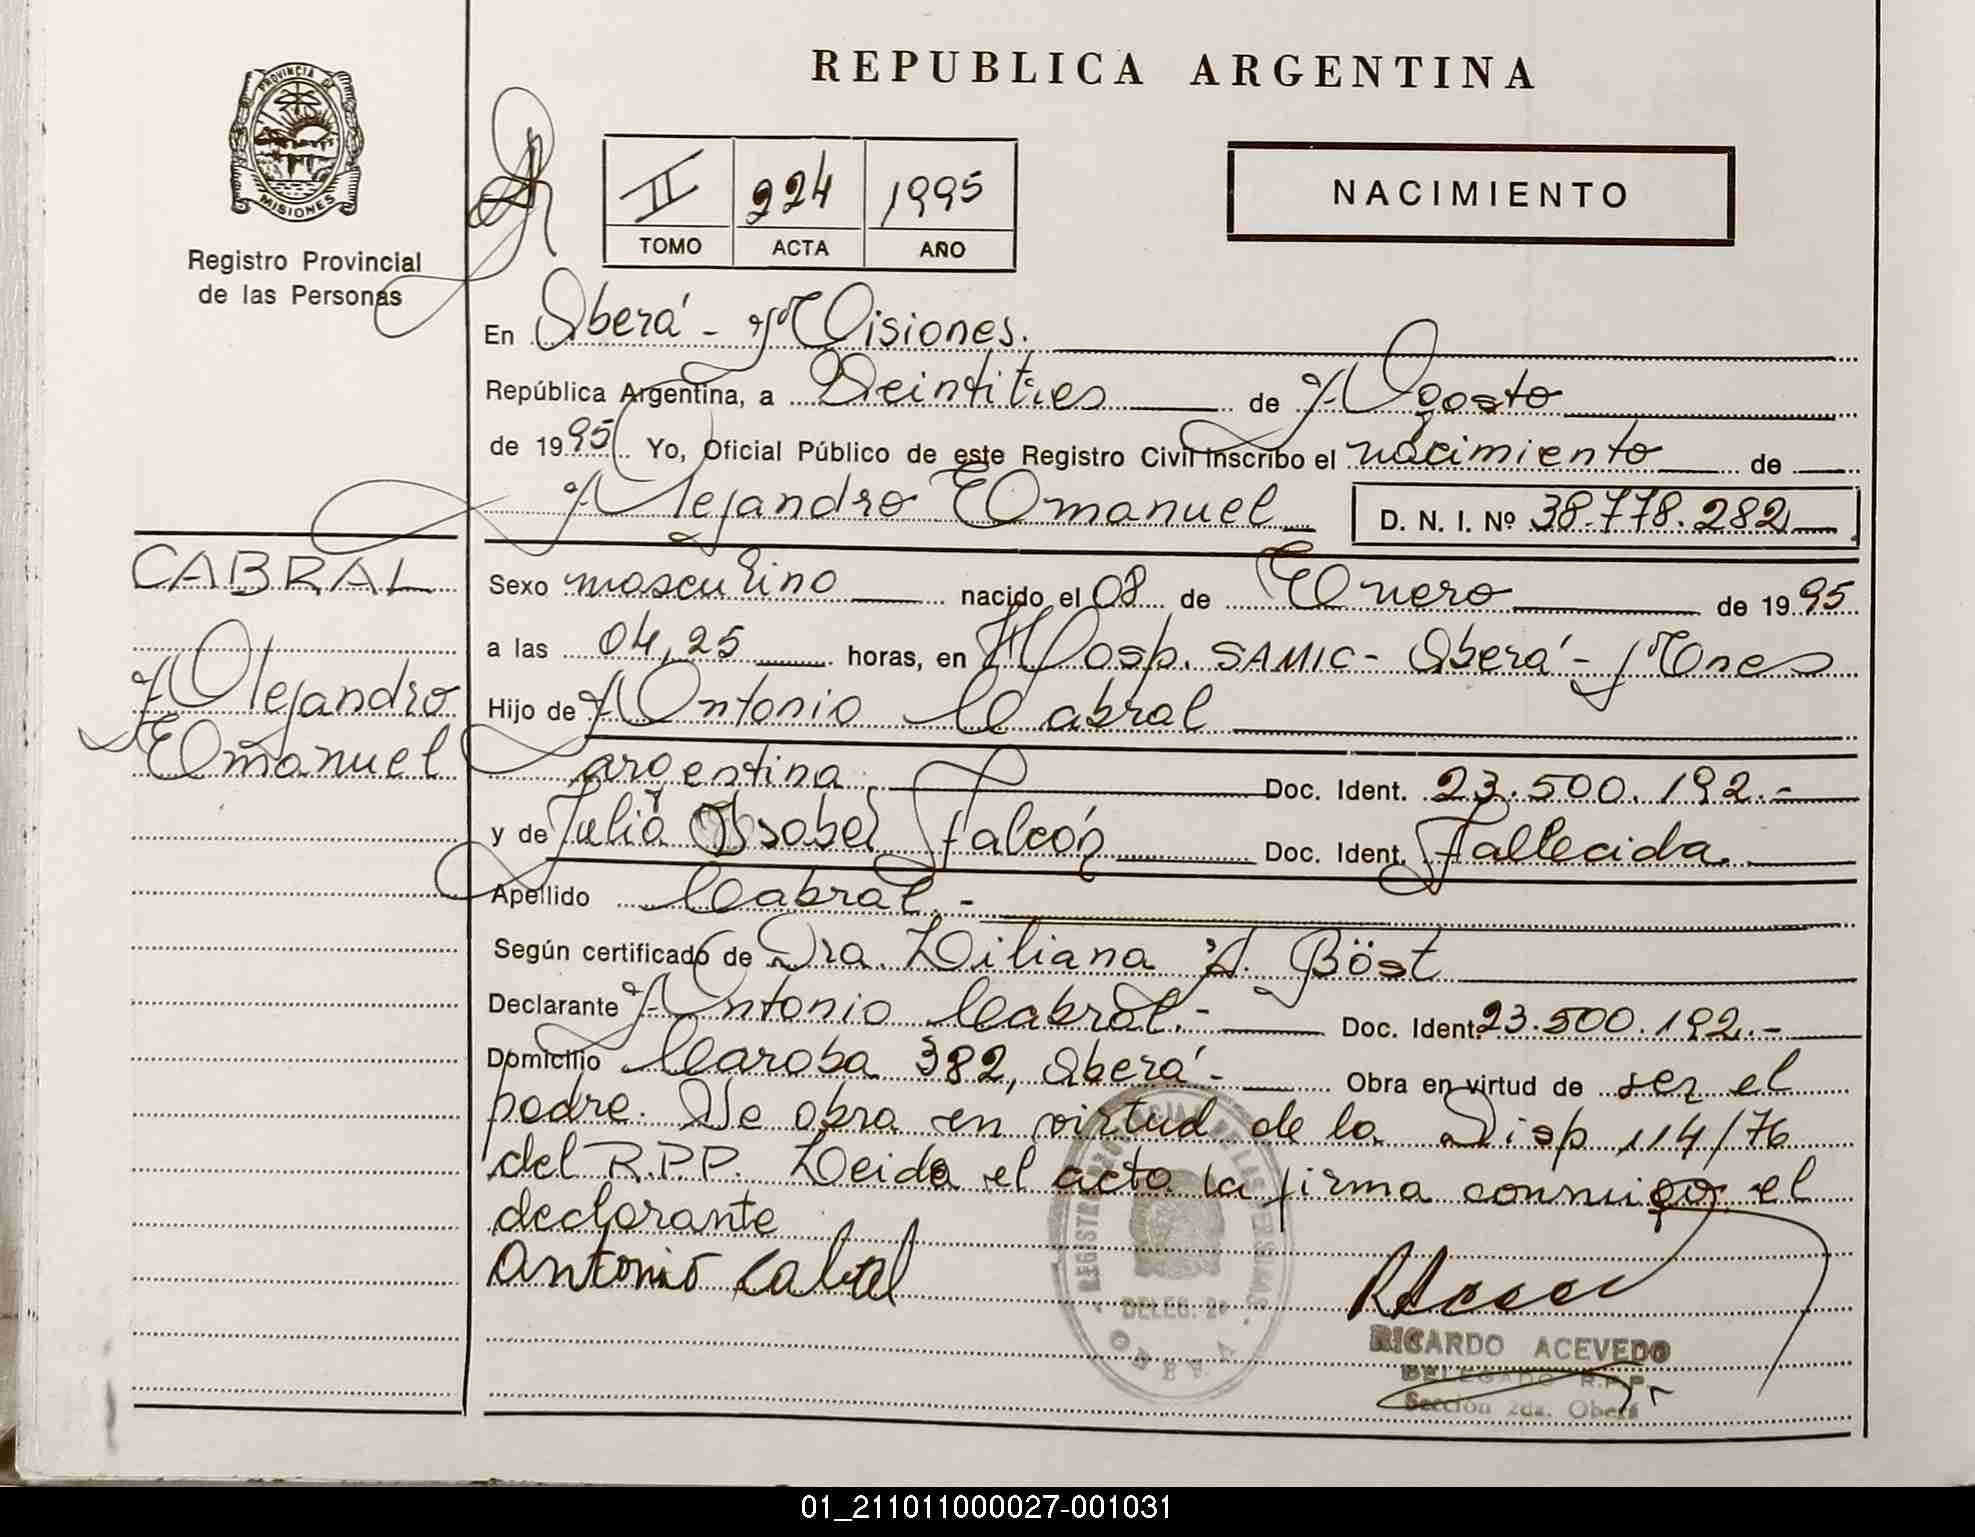 REPUBLICA ARGENTINA
PROVINCIA DE
MISIONES
Registro Provincial
de las Personas
II 224 1995
TOMO ACTA AÑO
NACIMIENTO
En Oberá - Misiones.
República Argentina, a Veintitres de Agosto
de 1995 Yo, Oficial Público de este Registro Civil inscribo el nacimiento de
Alejandro Emanuel D. N. I. Nº 38.778.282
CABRAL
Alejandro
Emanuel
Sexo masculino nacido el 08 de Enero de 1995
a las 04,25 horas, en Hosp. SAMIC - Oberá - Mnes
Hijo de Antonio Cabral
argentina Doc. Ident. 23.500.192.-
y de Julia Ysabel Falcón Doc. Ident. Fallecida.
Apellido Cabral.-
Según certificado de Dra. Liliana A. Böst
Declarante Antonio Cabral.- Doc. Ident. 23.500.192.-
Domicilio Caroba 382, Oberá - Obra en virtud de ser el
padre. Se obra en virtud de la Disp 114/76
del R.P.P. Leida el acta la firma conmigo el
declarante
Antonio Cabral
DELEG. 2ª
OBERA
RICARDO ACEVEDO
DELEGADO R.P.P.
Sección 2da. Oberá
01_211011000027-001031